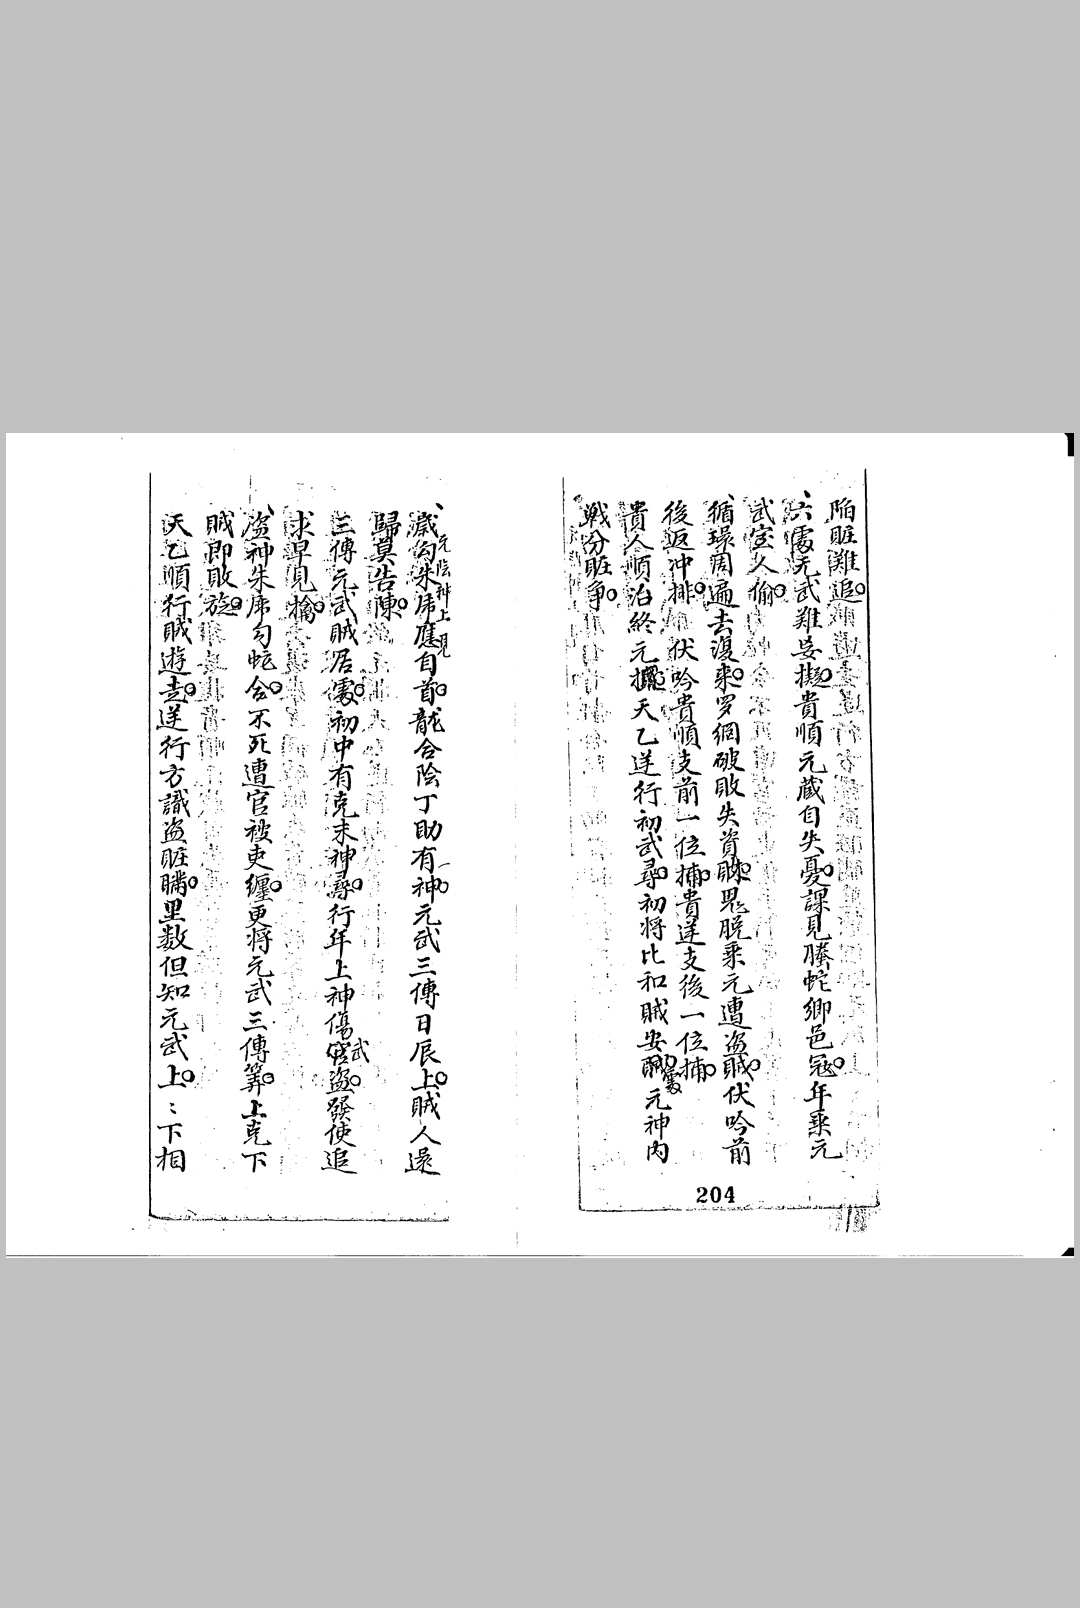 陷賍難追。
、六處元武難妄擬。貴順元藏自失憂。課見螣蛇鄉邑冠。年乘元
武室久偷。
、循環周遍去復来。罗網破敗失資財。鬼脱乘元遭盗賊。伏吟前
後返冲排。伏吟貴順支前一位捕。貴逆支後一位捕。
貴人順治終元擺。天乙逆行初武尋。初将比和賊安處。元神内
戰分賍争。
、歳勾朱虎應自首。龍合陰丁助有神。元武三傳日辰上。賊人遠
元陰神上見
歸莫告陳。
三傳元武賊居處。初中有克末神尋。行年上神傷武盗。發使追
求早見擒。
、盗神朱虎勾蛇会。不死遭官被吏纏。更将元武三傳筭。上克下
賊即敗旋。
天乙順行賊遊去。逆行方識盗賍購。里数但知元武上。〻下相
204